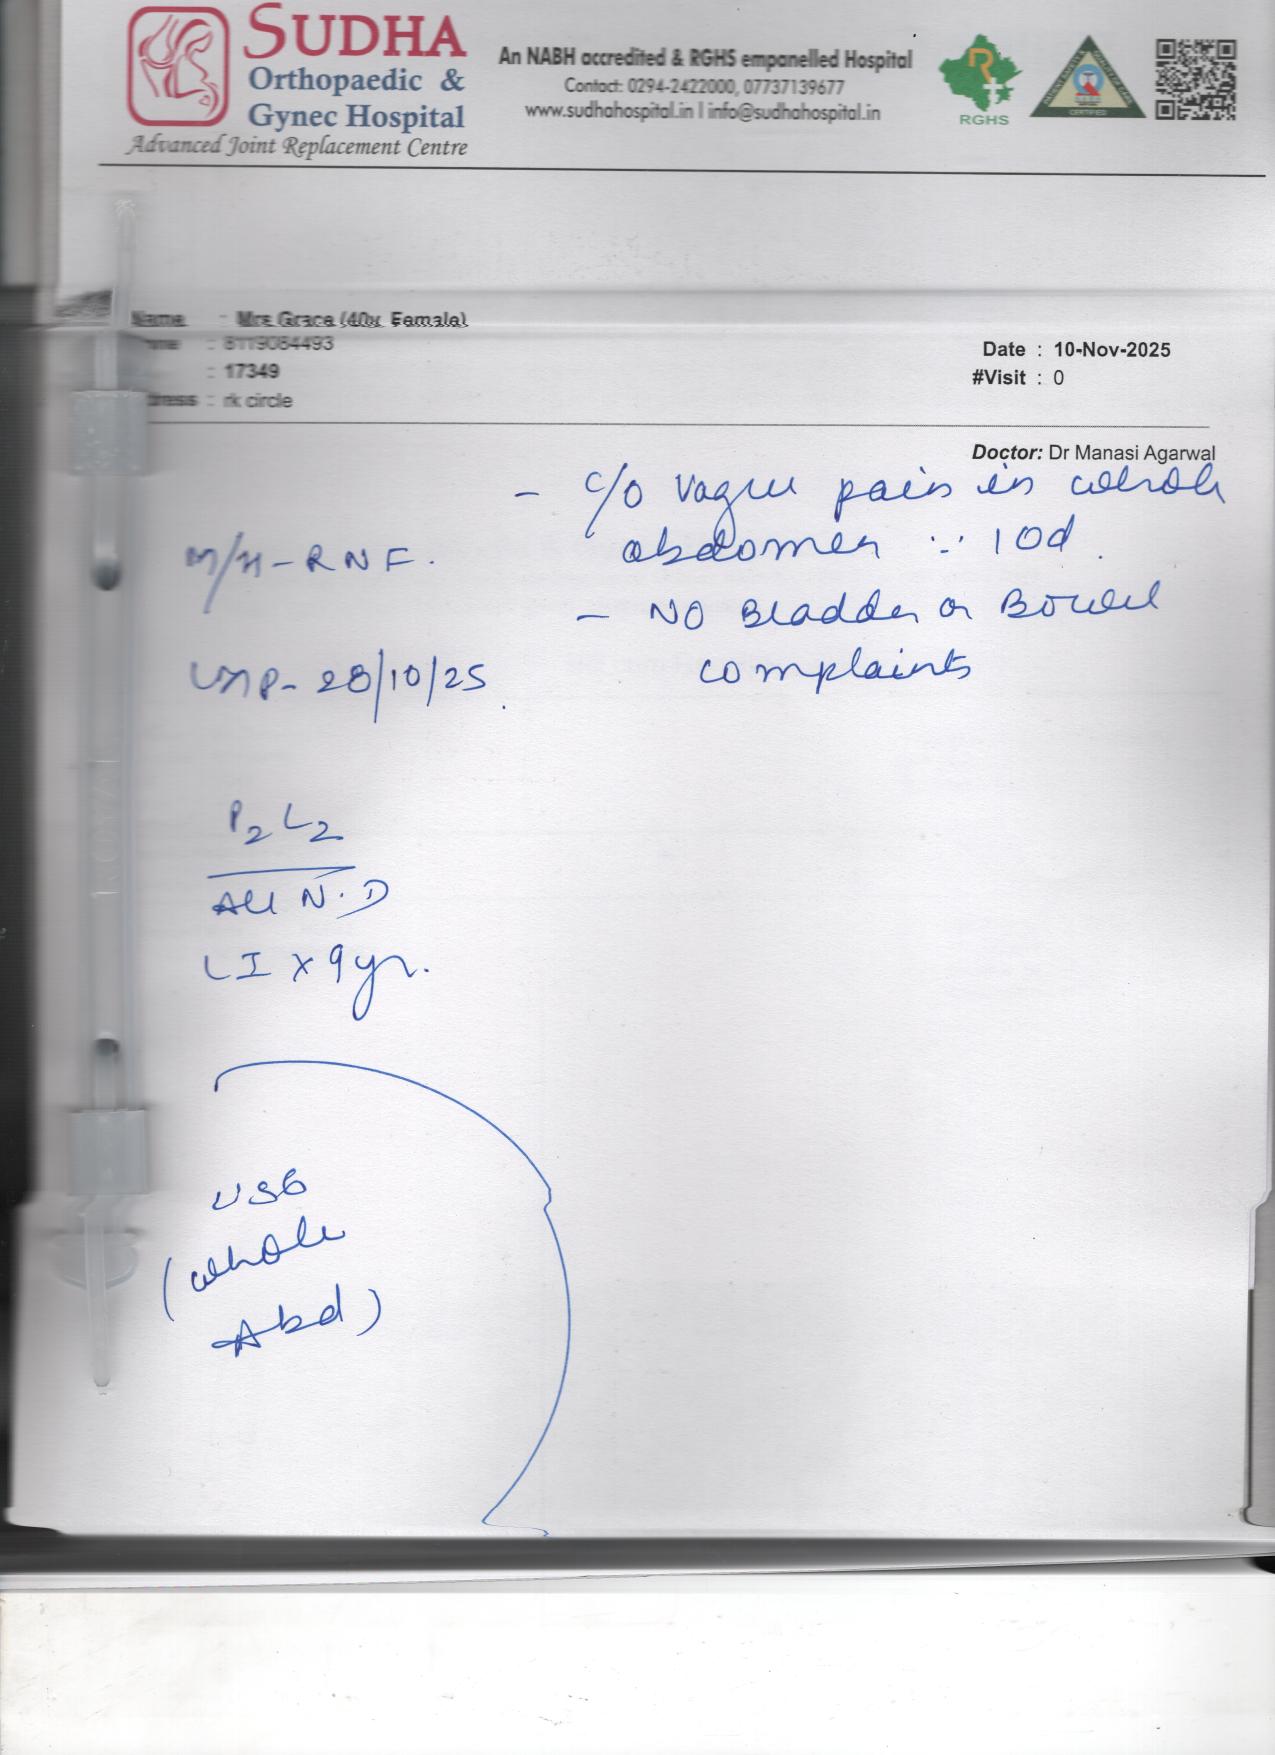 SUDHA
Orthopaedic &
Gynec Hospital
Advanced Joint Replacement Centre
An NABH accredited & RGHS empanelled Hospital
Contact: 0294-2422000, 07737139677
www.sudhahospital.in | info@sudhahospital.in
R
RGHS
CERTIFIED
Name : Mrs Grace (40y, Female)
: 8119084493
: 17349
: rk circle
Date : 10-Nov-2025
#Visit : 0
Doctor: Dr Manasi Agarwal
- c/o vague pain in whole
abdomen ∵ 10d.
- NO Bladder or Bowel
complaints
M/H - RNF.
LMP - 28/10/25.
P2 L2
All N.D
LI x 9yr.
USG
(whole
Abd)